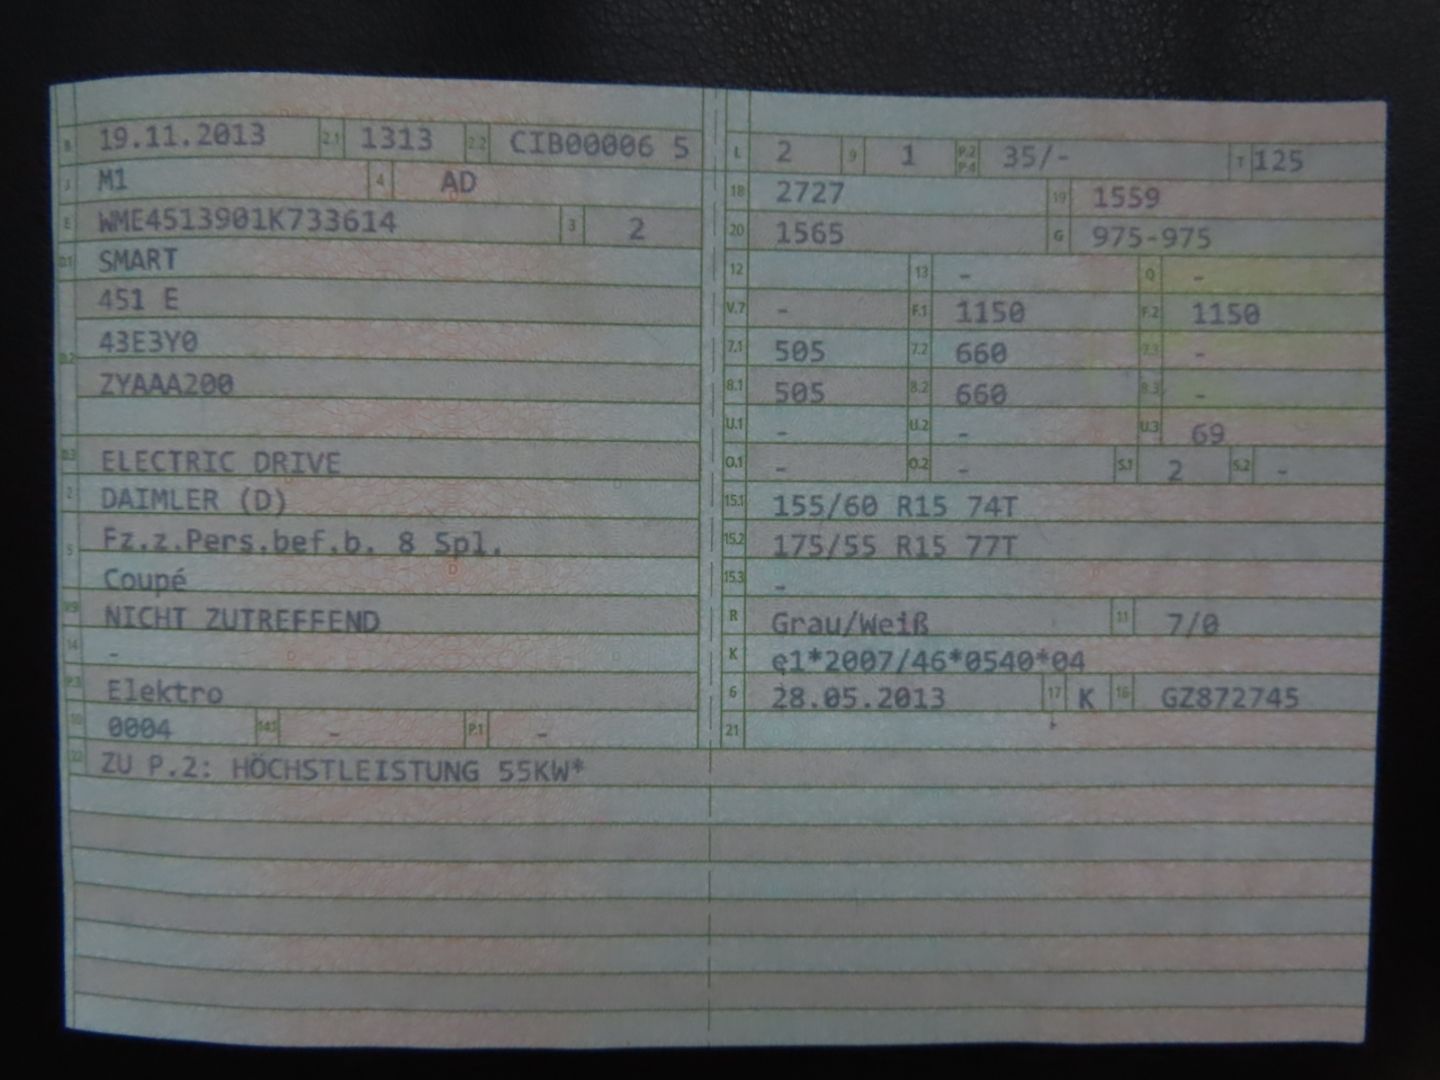 B 19.11.2013 2.1 1313 2.2 CIB00006 5
J M1 4 AD
E WME4513901K733614 3 2
D.1 SMART
451 E
D.2 43E3Y0
ZYAAA200
D.3 ELECTRIC DRIVE
2 DAIMLER (D)
5 Fz.z.Pers.bef.b. 8 Spl.
Coupé
V.9 NICHT ZUTREFFEND
14 -
P.3 Elektro
10 0004 14.1 - P.1 -
L 2 9 1 P.2 P.4 35/- T 125
18 2727 19 1559
20 1565 G 975-975
12 13 - Q -
V.7 - F.1 1150 F.2 1150
7.1 505 7.2 660 7.3 -
8.1 505 8.2 660 8.3 -
U.1 - U.2 - U.3 69
O.1 - O.2 - S.1 2 S.2 -
15.1 155/60 R15 74T
15.2 175/55 R15 77T
15.3 -
R Grau/Weiß 11 7/0
K e1*2007/46*0540*04
6 28.05.2013 17 K 16 GZ872745
21
22 ZU P.2: HÖCHSTLEISTUNG 55KW*